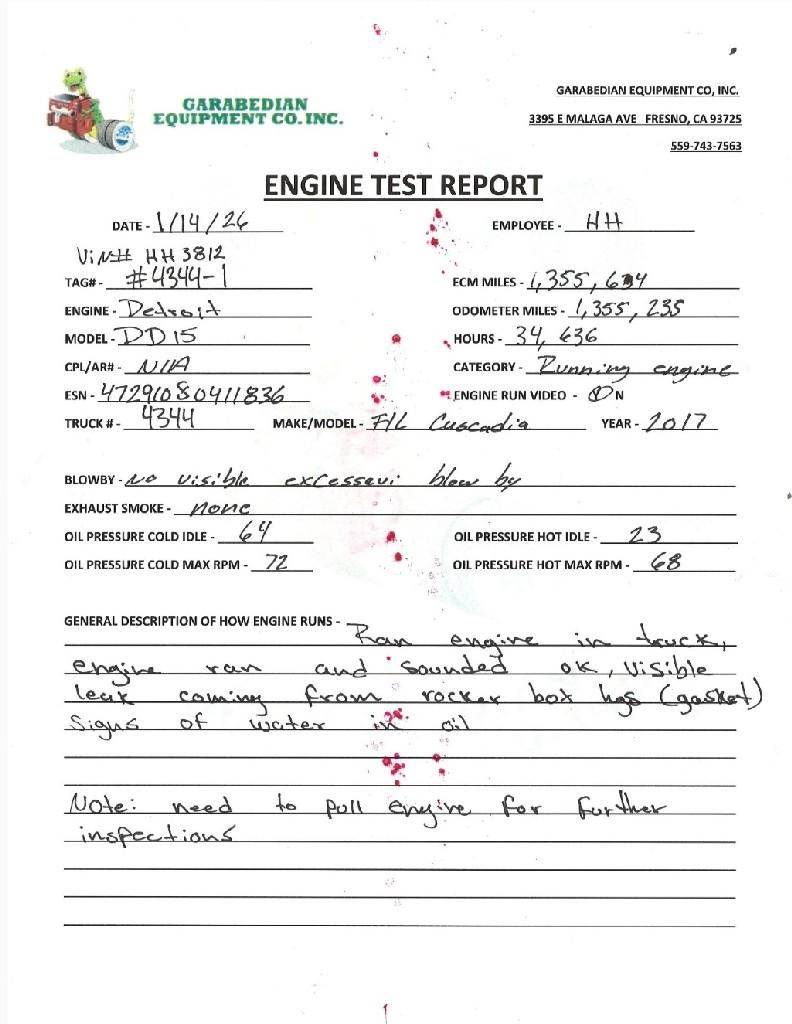 GARABEDIAN
EQUIPMENT CO. INC.
GARABEDIAN EQUIPMENT CO, INC.
3395 E MALAGA AVE FRESNO, CA 93725
559-743-7563
ENGINE TEST REPORT
DATE - 1/14/26 EMPLOYEE - HH
Vin# HH3812
TAG# - #4344-1 ECM MILES - 1,355,634
ENGINE - Detroit ODOMETER MILES - 1,355,235
MODEL - DD15 HOURS - 34,636
CPL/AR# - N/A CATEGORY - Running engine
ESN - 47291080411836 ENGINE RUN VIDEO - Y N
TRUCK # - 4344 MAKE/MODEL - F/L Cuscadia YEAR - 2017
BLOWBY - No visible excessevi blow by
EXHAUST SMOKE - none
OIL PRESSURE COLD IDLE - 64 OIL PRESSURE HOT IDLE - 23
OIL PRESSURE COLD MAX RPM - 72 OIL PRESSURE HOT MAX RPM - 68
GENERAL DESCRIPTION OF HOW ENGINE RUNS - Ran engine in truck,
engine ran and sounded ok, visible
leak coming from rocker box hgs (gasket)
Signs of water in oil
Note: need to pull engine for further
inspections